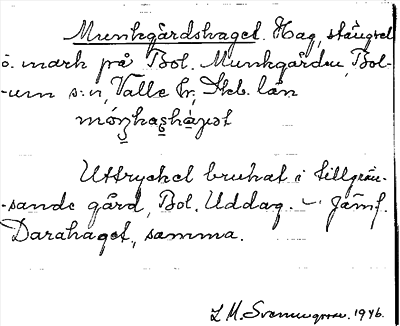 Munkgårdshaget. Hag, stängsel
å mark på Bol. Munkgården, Bol-
-um s:n, Valle hr, Skb. län
Uttrycket brukat i tillgrän-
-sande gård, Bol. Uddag. – Jämf.
Darahaget, samma.
L M. Svenungsson. 1946.